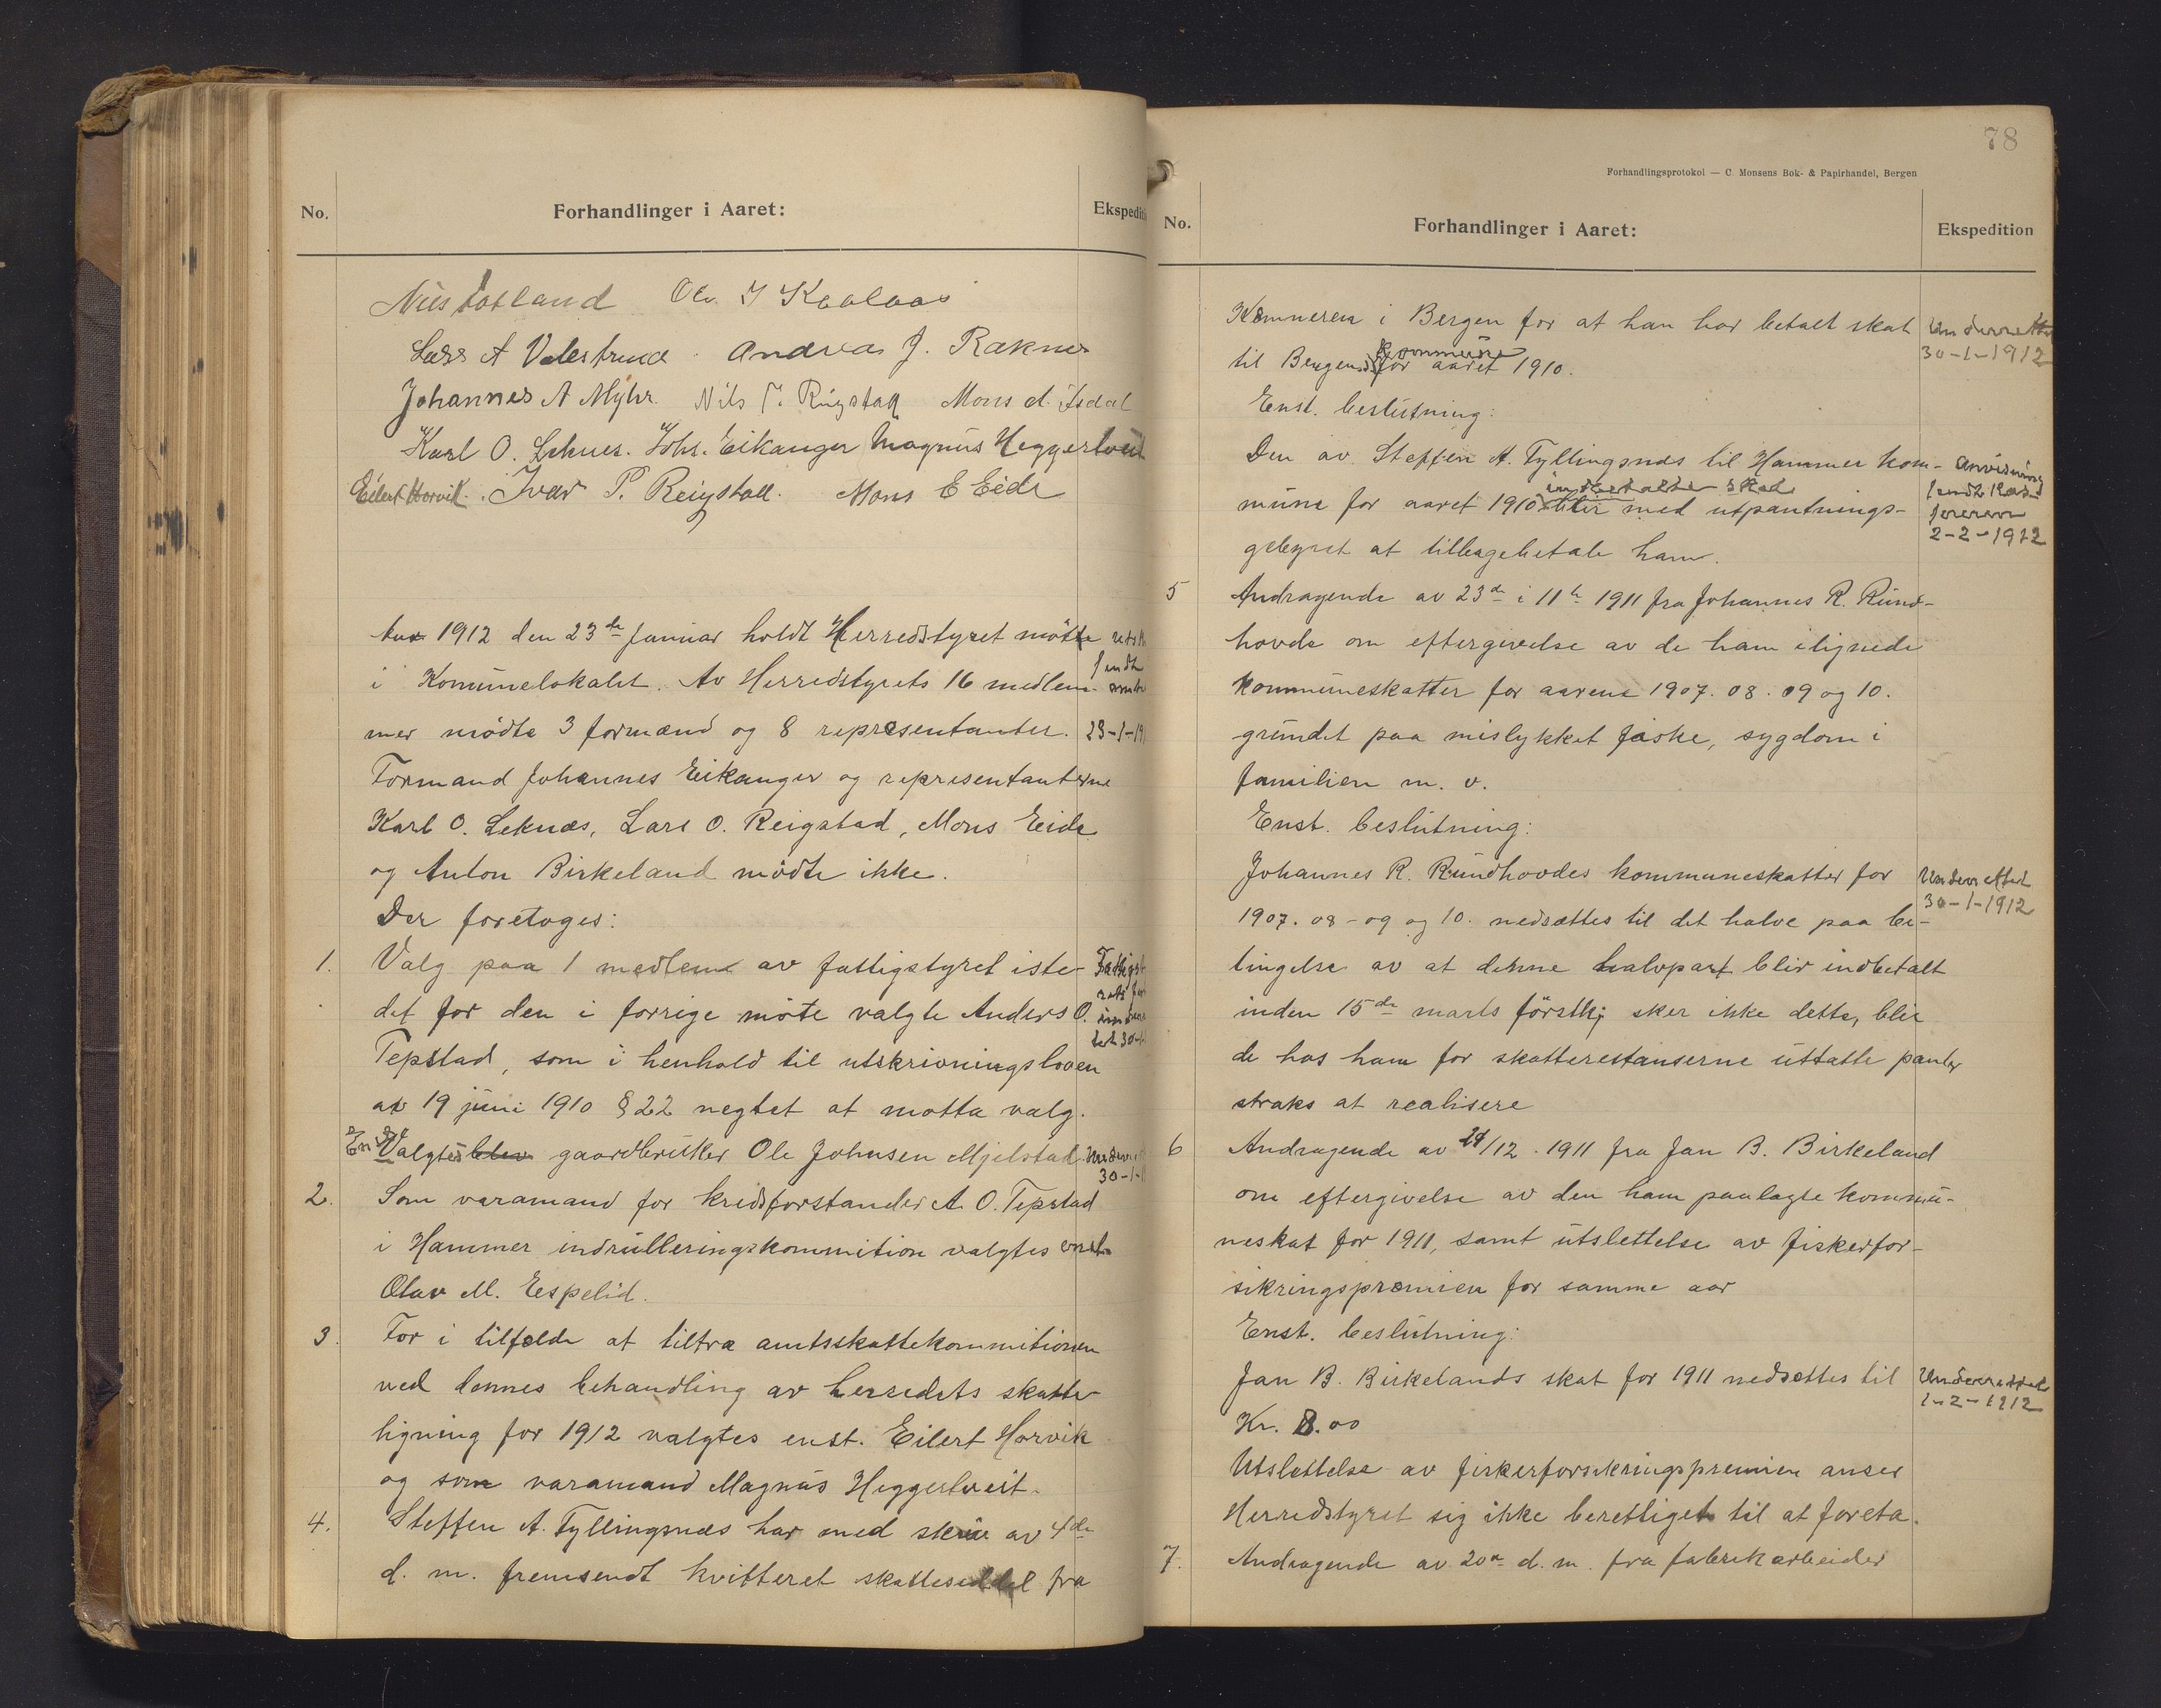 No.
Forhandlinger i Aaret:
Ekspedit
Nils Totland Ole J Kaalaas
Lars A Valestrand Andreas J. Raknes
Johannes A Myhr. Nils T. Rigstad Mons A. Isdal
Karl O. Leknes. Johs. Eikanger Magnus Heggertveit
Eilert Horvik. Ivar P. Reigstad. Mons E Eide
Aar 1912 den 23de Januar holdt Herredstyret møtte
i Komunelokalet. Av Herredstyrets 16 medlem-
mer mødte 3 formænd og 8 representanter.
23-1-19
Formand Johannes Eikanger og representanterne
Karl O. Leknæs, Lars O. Reigstad, Mons Eide
og Anton Birkeland mødte ikke.
Der foretoges:
1. Valg paa 1 medlem av fattigstyret iste-
det for den i forrige møte valgte Anders O.
Tepstad, som i henhold til utskrivningsloven
av 19 juni 1910 § 22 negtet at motta valg.
Enst. Valgtes blev gaardbruker Ole Johnsen Mjelstad.
30-1-1
2. Som varamand for kredsforstander A. O. Tepstad
i Hammer indrulleringskommition valgtes enst.
Olav M. Eespelid.
3. For i tilfælde at tiltræ amtsskattekommitionen
ved dennes behandling av herredets skatte-
ligning for 1912 valgtes enst. Eilert Horvik
og som varamand Magnus Heggertveit.
4. Steffen A. Tyllingsnæs har med skriv av 4de
d. m. fremsendt kvitteret skatteseddel fra
78
Forhandlingsprotokol — C. Monsens Bok- & Papirhandel, Bergen
No.
Forhandlinger i Aaret:
Ekspedition
Kemneren i Bergen for at han har betalt skat
Underrettet
30-1-1912
til Bergens kommune for aaret 1910.
Enst. beslutning:
Den av Steffen A. Tyllingsnæs til Hammer kom-
mune for aaret 1910 indbetalte skat blir med utpantnings-
gebyret at tilbagebetale ham.
Anvisning
sendt kas-
sereren
2-2-1912
5 Andragende av 23de i 11te 1911 fra Johannes R. Rund-
hovde om eftergivelse av de ham ilignede
kommuneskatter for aarene 1907. 08. 09 og 10.
grundet paa mislykket fiske, sygdom i
familien m. v.
Enst. beslutning:
Johannes R. Rundhovdes kommuneskatter for
Underrettet
30-1-1912
1907. 08 - 09 og 10. nedsættes til det halve paa be-
tingelse av at denne halvpart blir indbetalt
inden 15de marts førstk; sker ikke dette, blir
de hos ham for skatterestanserne uttatte panter
straks at realisere
6 Andragende av 29/12. 1911 fra Jan B. Birkeland
om eftergivelse av den ham paalagte kommu-
neskat for 1911, samt utslettelse av fiskerfor-
sikringspræmien for samme aar
Enst. beslutning:
Jan B. Birkelands skat for 1911 nedsættes til
Underrettet
1-2-1912
Kr. 8.00
Utslettelse av fiskerforsikringspremien anser
Herredstyret sig ikke berettiget til at foreta.
7. Andragende av 20de d. m. fra fabrikarbeider